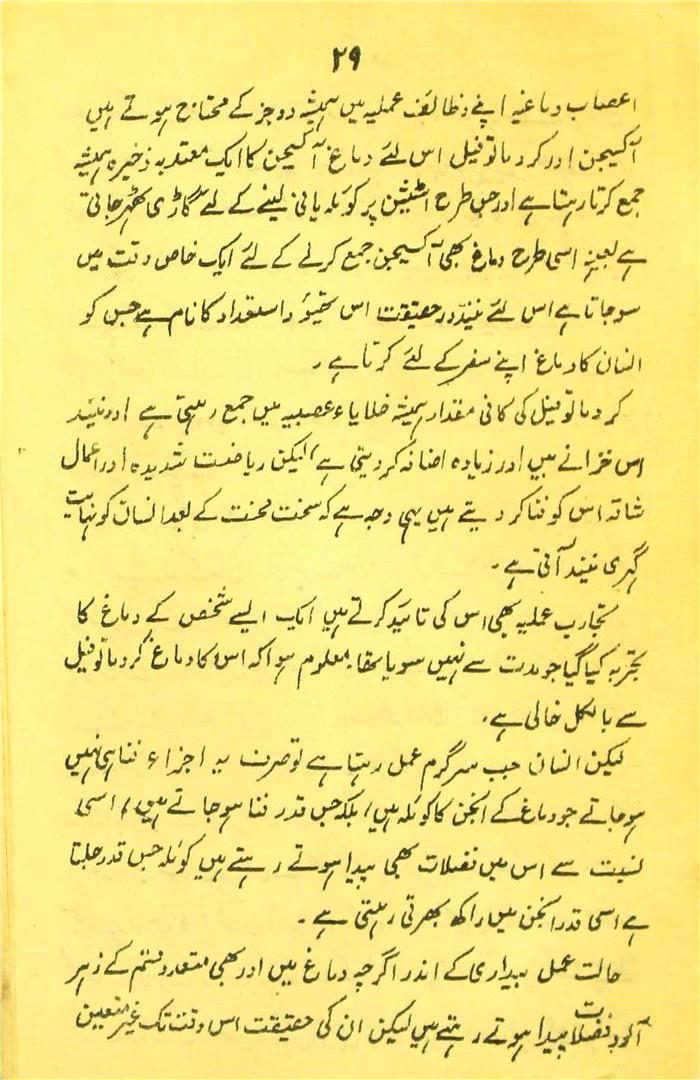 ۲۹
اعصاب دماغیہ اپنے وظائف عملیہ میں ہمیشہ دو چیز کے محتاج ہوتے ہیں
آکسیجن اور کروماتوفیل اس لئے دماغ آکسیجن کا ایک معتدبہ ذخیرہ ہمیشہ
جمع کرتا رہتا ہے اور جس طرح اسٹیشن پر کوئلہ پانی لینے کے لئے گاڑی ٹھہر جاتی
ہے بعینہ اسی طرح دماغ بھی آکسیجن جمع کرنے کے لئے ایک خاص وقت میں
سو جاتا ہے اس لئے نیند در حقیقت اس تہیؤ و استعداد کا نام ہے جس کو
انسان کا دماغ اپنے سفر کے لئے کرتا ہے ۔
کروماتوفیل کی کافی مقدار ہمیشہ خلایاء عصبیہ میں جمع رہتی ہے اور نیند
اس خزانے میں اور زیادہ اضافہ کر دیتی ہے، لیکن ریاضت شدیدہ اور اعمال
شاقہ اس کو فنا کر دیتے ہیں یہی وجہ ہے کہ سخت محنت کے بعد انسان کو نہایت
گہری نیند آتی ہے ۔
تجارب عملیہ بھی اس کی تائید کرتے ہیں ایک ایسے شخص کے دماغ کا
تجربہ کیا گیا جو مدت سے نہیں سویا تھا۔ معلوم ہوا کہ اس کا دماغ کروماتوفیل
سے بالکل خالی ہے ۔
لیکن انسان جب سرگرم عمل رہتا ہے تو صرف یہ اجزاء فنا ہی نہیں
ہو جاتے جو دماغ کے انجن کا کوئلہ ہیں، بلکہ جس قدر فنا ہو جاتے ہیں، اسی
نسبت سے اس میں فضلات بھی پیدا ہوتے رہتے ہیں کوئلہ جس قدر جلتا
ہے اسی قدر انجن میں راکھ بھرتی رہتی ہے ۔
حالت عمل بیداری کے اندر اگرچہ دماغ میں اور بھی متعدد قسم کے زہر
آلود فضلات پیدا ہوتے رہتے ہیں لیکن ان کی حقیقت اس وقت تک غیر متعین